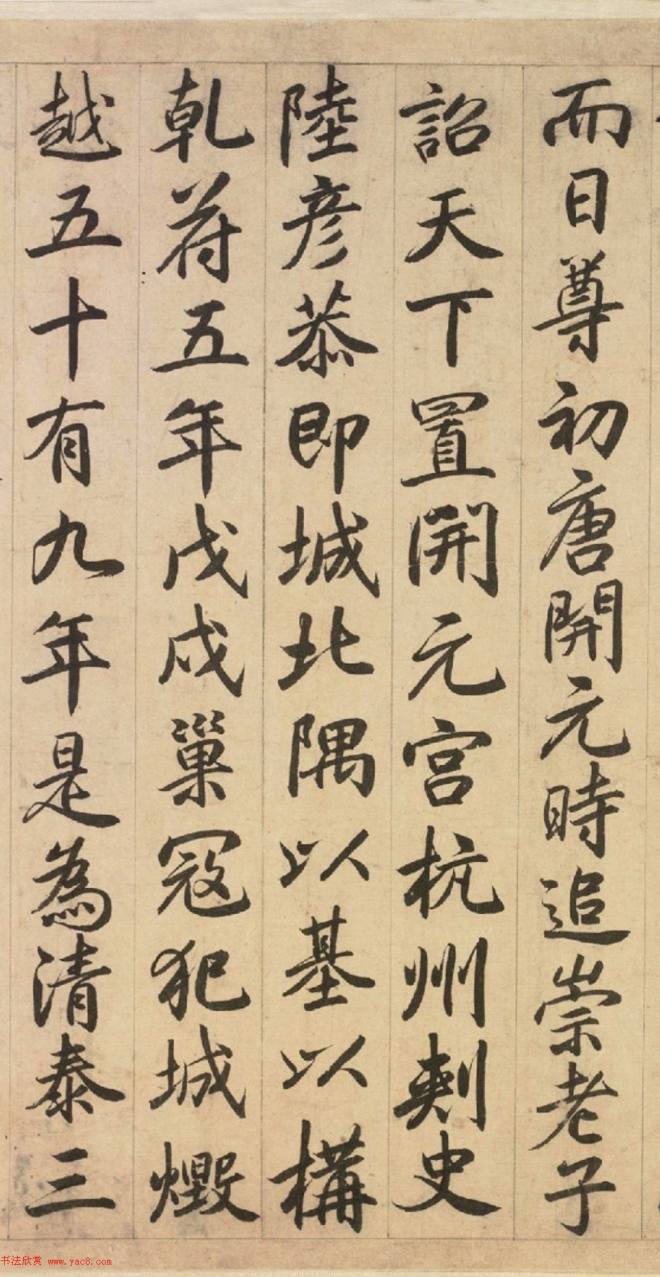 而日尊初唐開元時追崇老子
詔天下置開元宮杭州刺史
陸彥恭即城北隅以基以構
乾符五年戊戌巢寇犯城燬
越五十有九年是為清泰三
书法欣赏 www.yac8.com